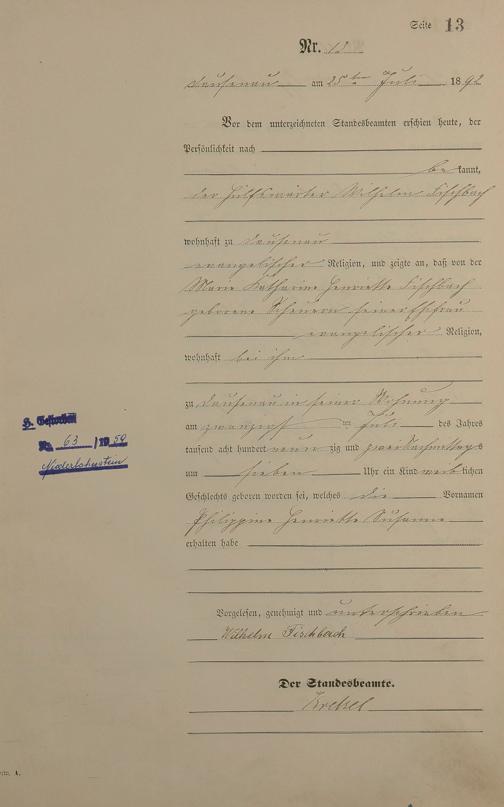 Seite 13
Nr. 13
Dausenau am 25ten Juli 1892
Vor dem unterzeichneten Standesbeamten erschien heute, der
Persönlichkeit nach
be kannt,
der Hülfswärter Wilhelm Fischbach
wohnhaft zu Dausenau
evangelischer Religion, und zeigte an, daß von der
Marie Katharine Henriette Fischbach
geborene Scheuern seiner Ehefrau
evangelischer Religion,
wohnhaft bei ihm
zu Dausenau in seiner Wohnung
am zwanzigsten Juli des Jahres
tausend acht hundert neun zig und zwei Nachmittags
um sieben Uhr ein Kind weib lichen
Geschlechts geboren worden sei, welches die Vornamen
Philippine Henriette Susanne
erhalten habe
Vorgelesen, genehmigt und unterschrieben
Wilhelm Fischbach
Der Standesbeamte.
Gestorben
Nr. 63 / 1950
Niederlahnstein
A.